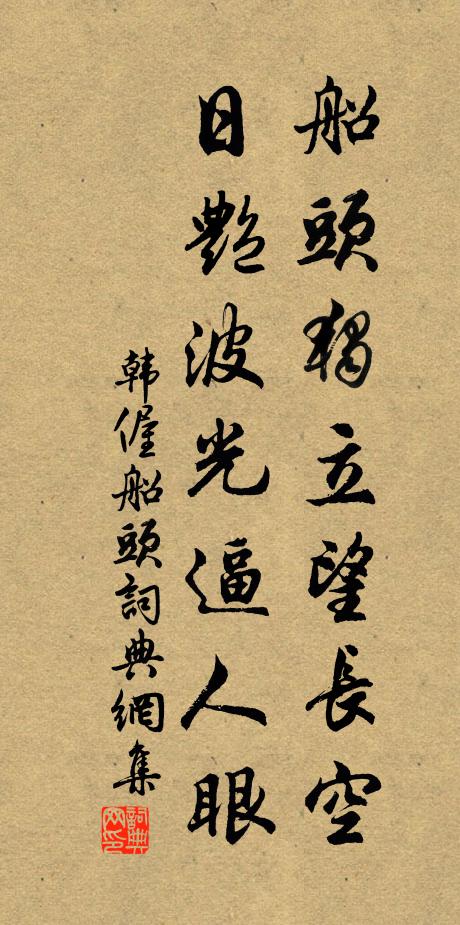 船頭獨立望長空
日艷波光逼人眼
韓偓船頭詞典網集
詞典網印